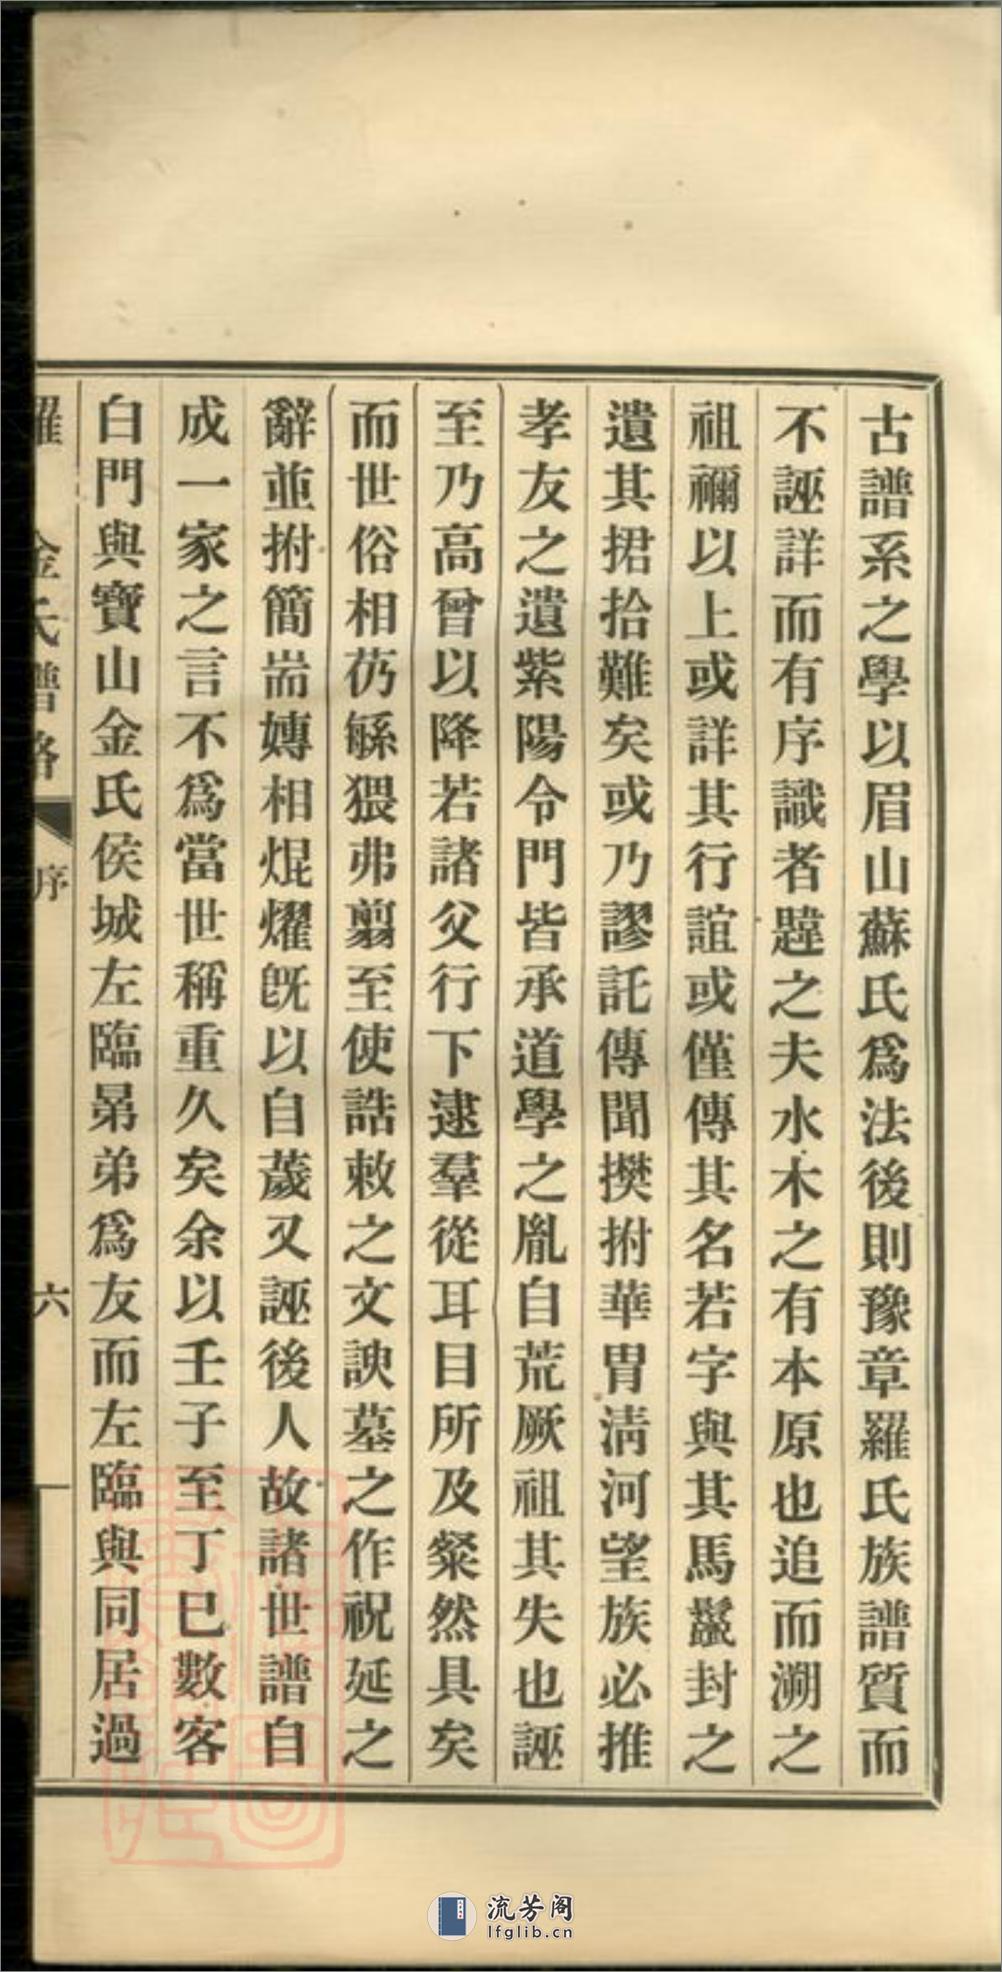 古譜系之學以眉山蘇氏爲法後則豫章羅氏族譜質而
不誣詳而有序識者韙之夫水木之有本原也追而溯之
祖禰以上或詳其行誼或僅傳其名若字與其馬鬛封之
遺其捃拾難矣或乃謬託傳聞㩯拊華胄淸河望族必推
孝友之遺紫陽令門皆承道學之胤自荒厥祖其失也誣
至乃高曾以降若諸父行下逮羣從耳目所及粲然具矣
而世俗相仍緐猥弗翦至使誥敕之文諛墓之作祝延之
辭並拊簡耑嫥相焜燿旣以自薉又誣後人故諸世譜自
成一家之言不爲當世稱重久矣余以壬子至丁巳數客
白門與寶山金氏侯城左臨㫷弟爲友而左臨與同居過
羅 金氏譜略 序 六
流芳阁
lfglib.cn